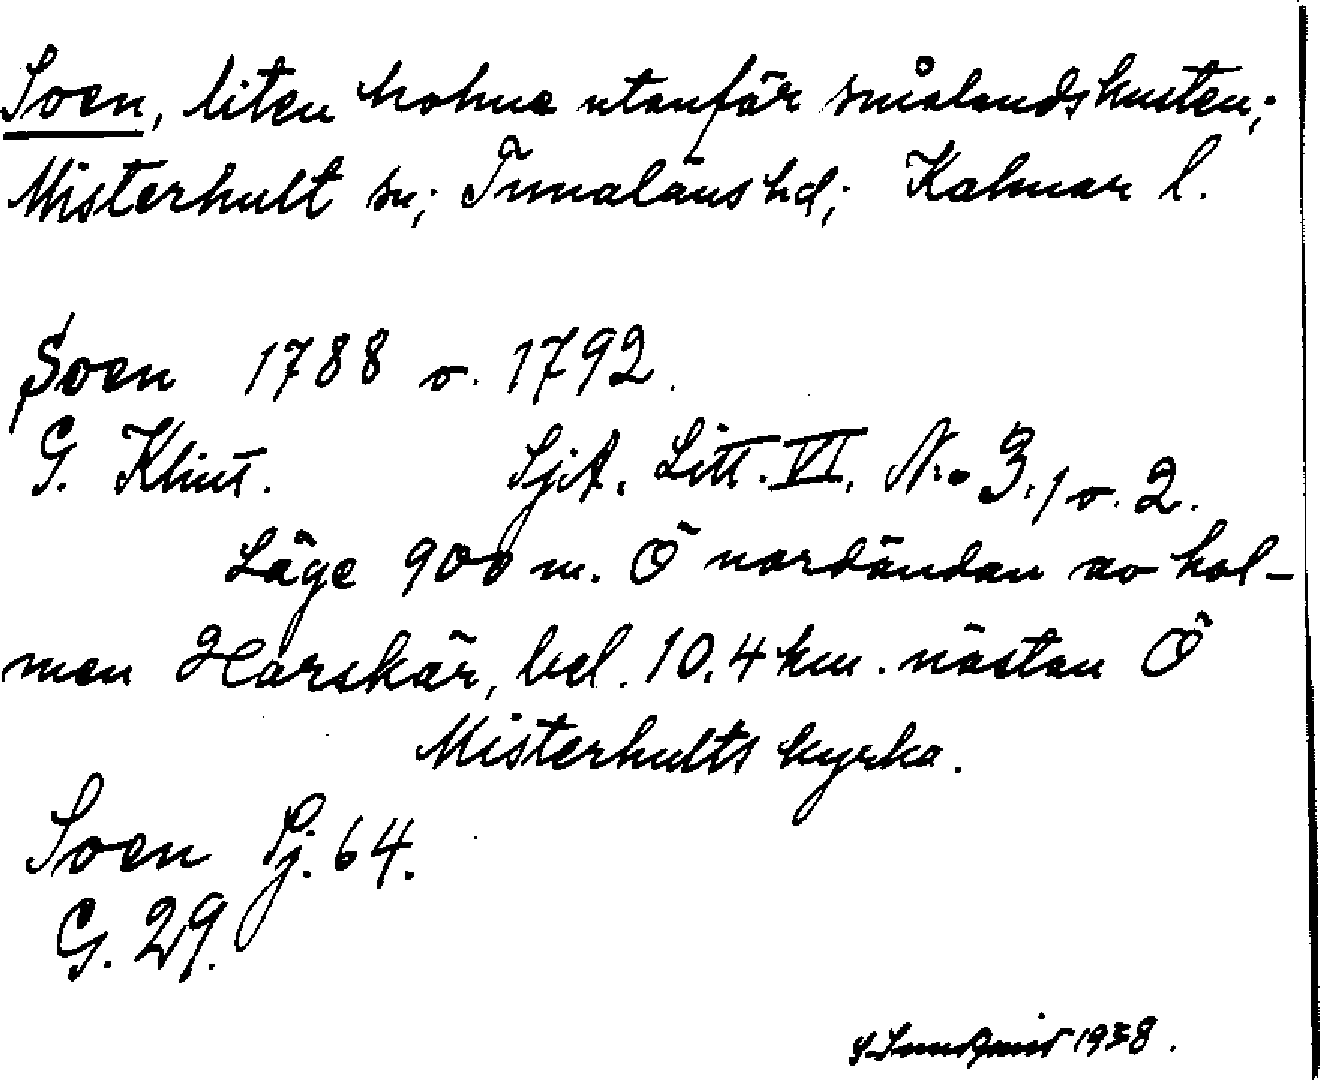 Soen, liten holme utanför smålandskusten;
Misterhult sn; Tunaläns hd; Kalmar l.
Soen 1788 o. 1792.
G. Klint. SjA. Litt. VI. No 3.1 o. 2.
Läge 900 m. Ö nordändan av hol-
men Harskär, bel. 10.4 km. nästan Ö
Misterhults kyrka.
Soen Sj. 64.
G. 29.
1938.